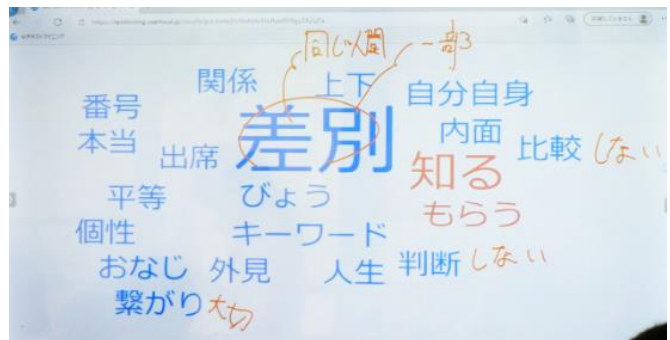 同じ人間
一部
関係
上下
自分自身
番号
差別
内面
本当
出席
比較 しない
知る
平等
びょう
もらう
個性
キーワード
おなじ
外見
人生
判断 しない
繋がり 大切